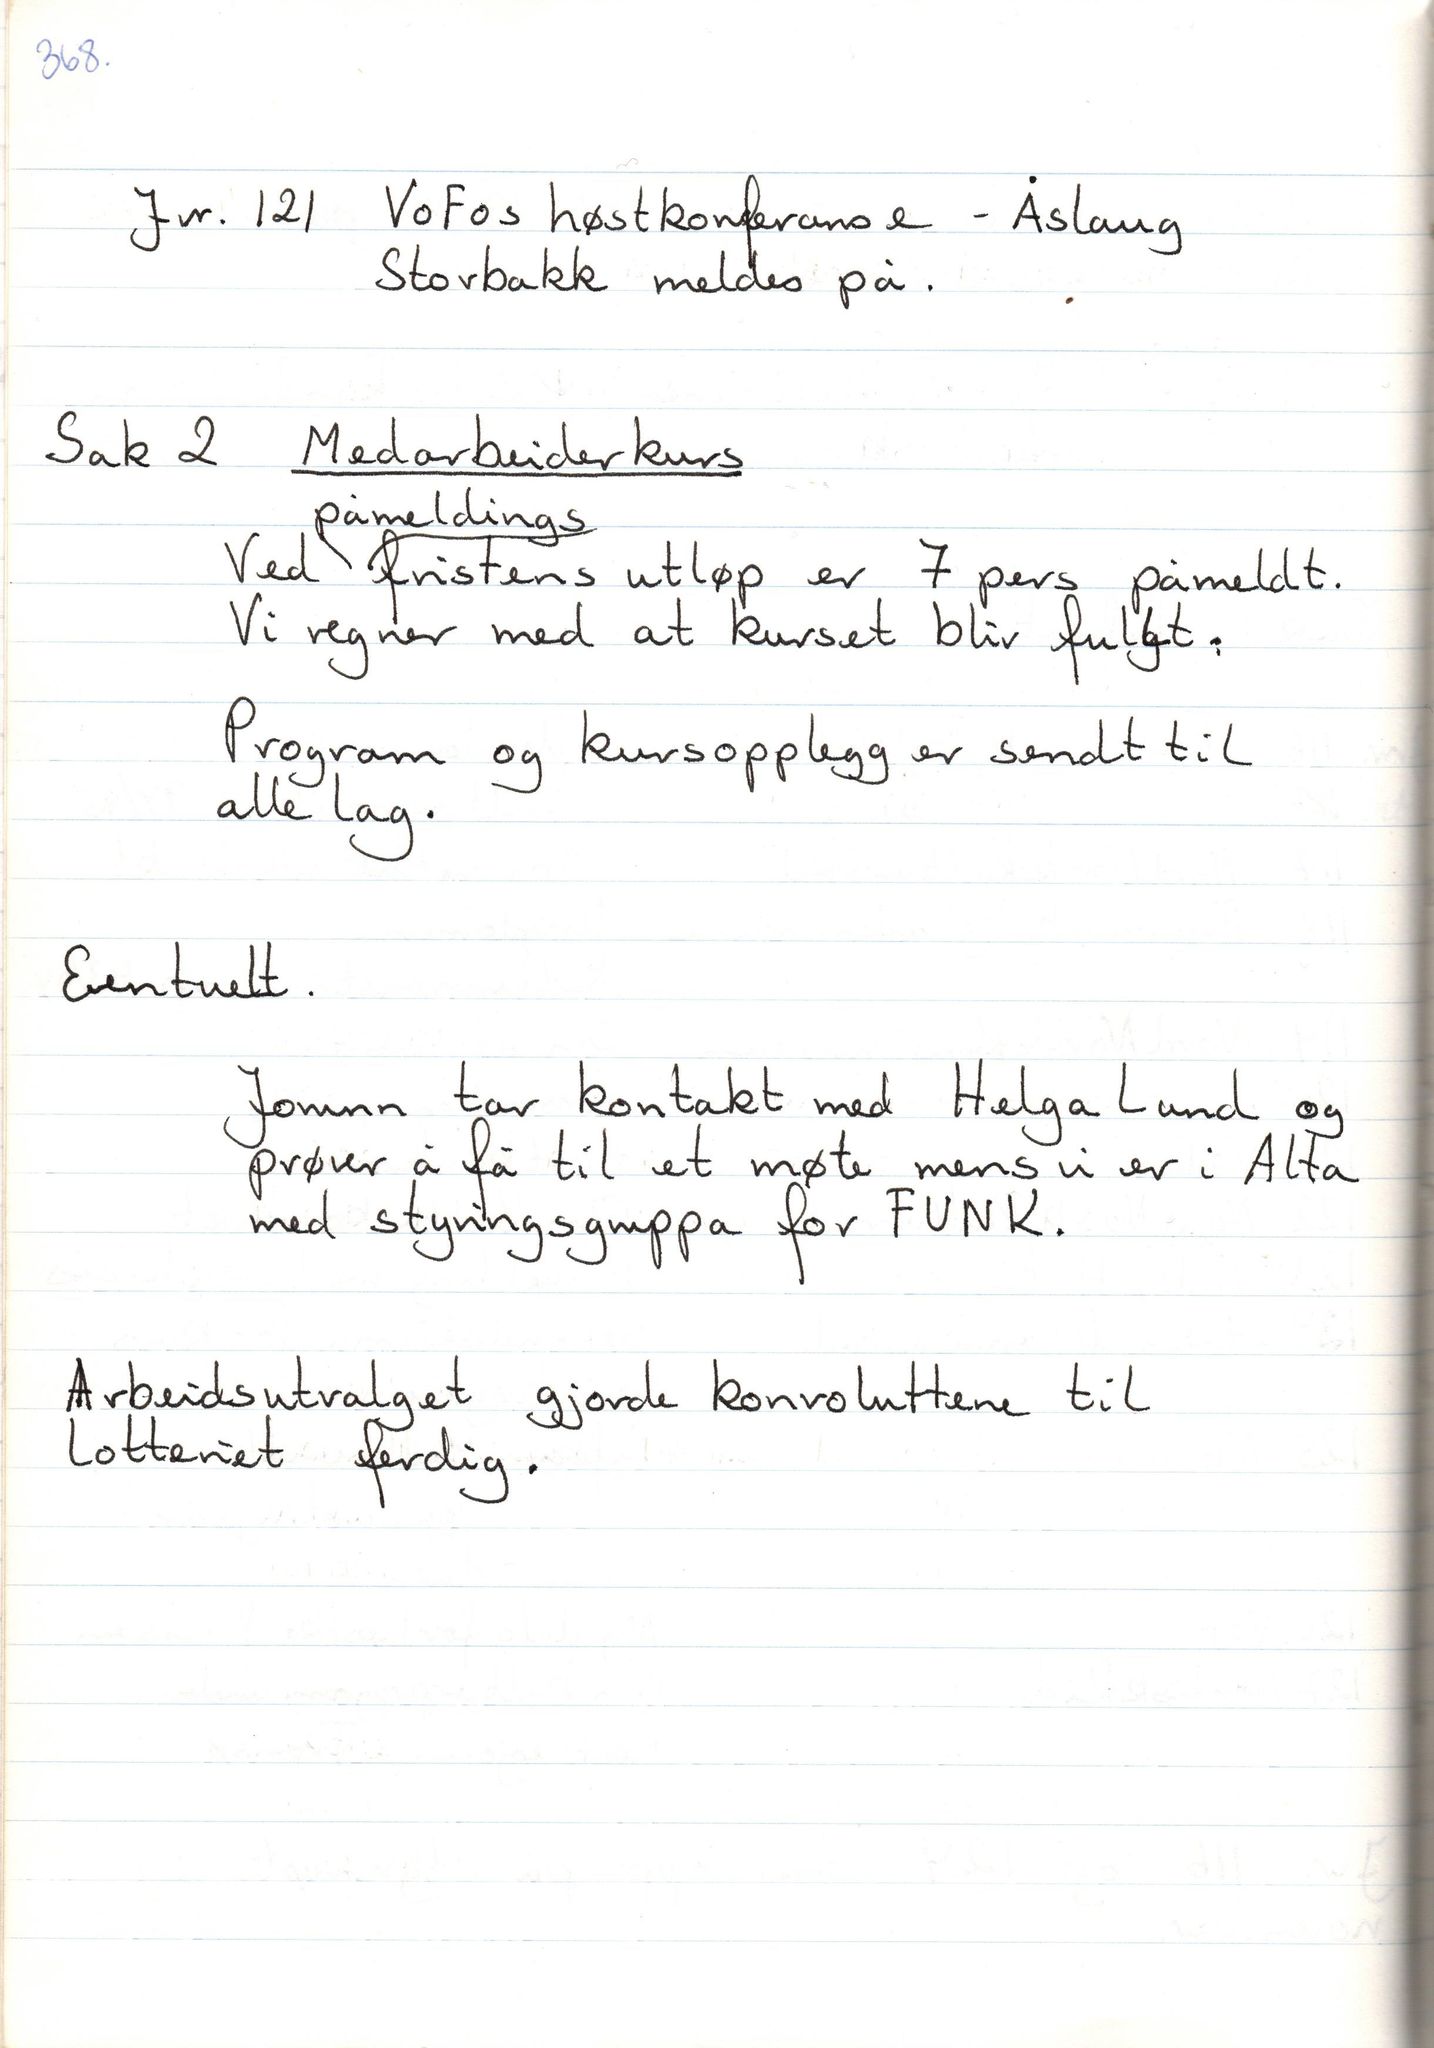 368.
Jnr. 121 VoFos høstkonferanse - Åslaug
Storbakk meldes på.
Sak 2 Medarbeiderkurs
påmeldings
Ved fristens utløp er 7 pers påmeldt.
Vi regner med at kurset blir fulgt.
Program og kursopplegg er sendt til
alle lag.
Eventuelt.
Jorunn tar kontakt med Helga Lund og
prøver å få til et møte mens vi er i Alta
med styringsgruppa for FUNK.
Arbeidsutvalget gjorde konvoluttene til
lotteriet ferdig.